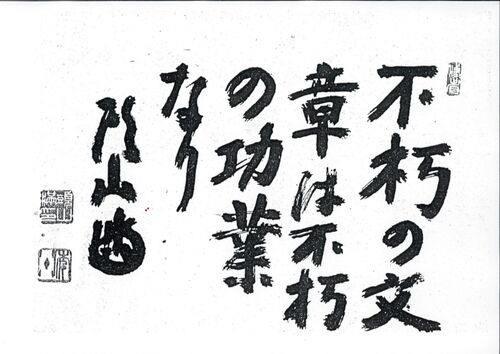 不朽の文
章は不朽
の功業
なり
頭山満